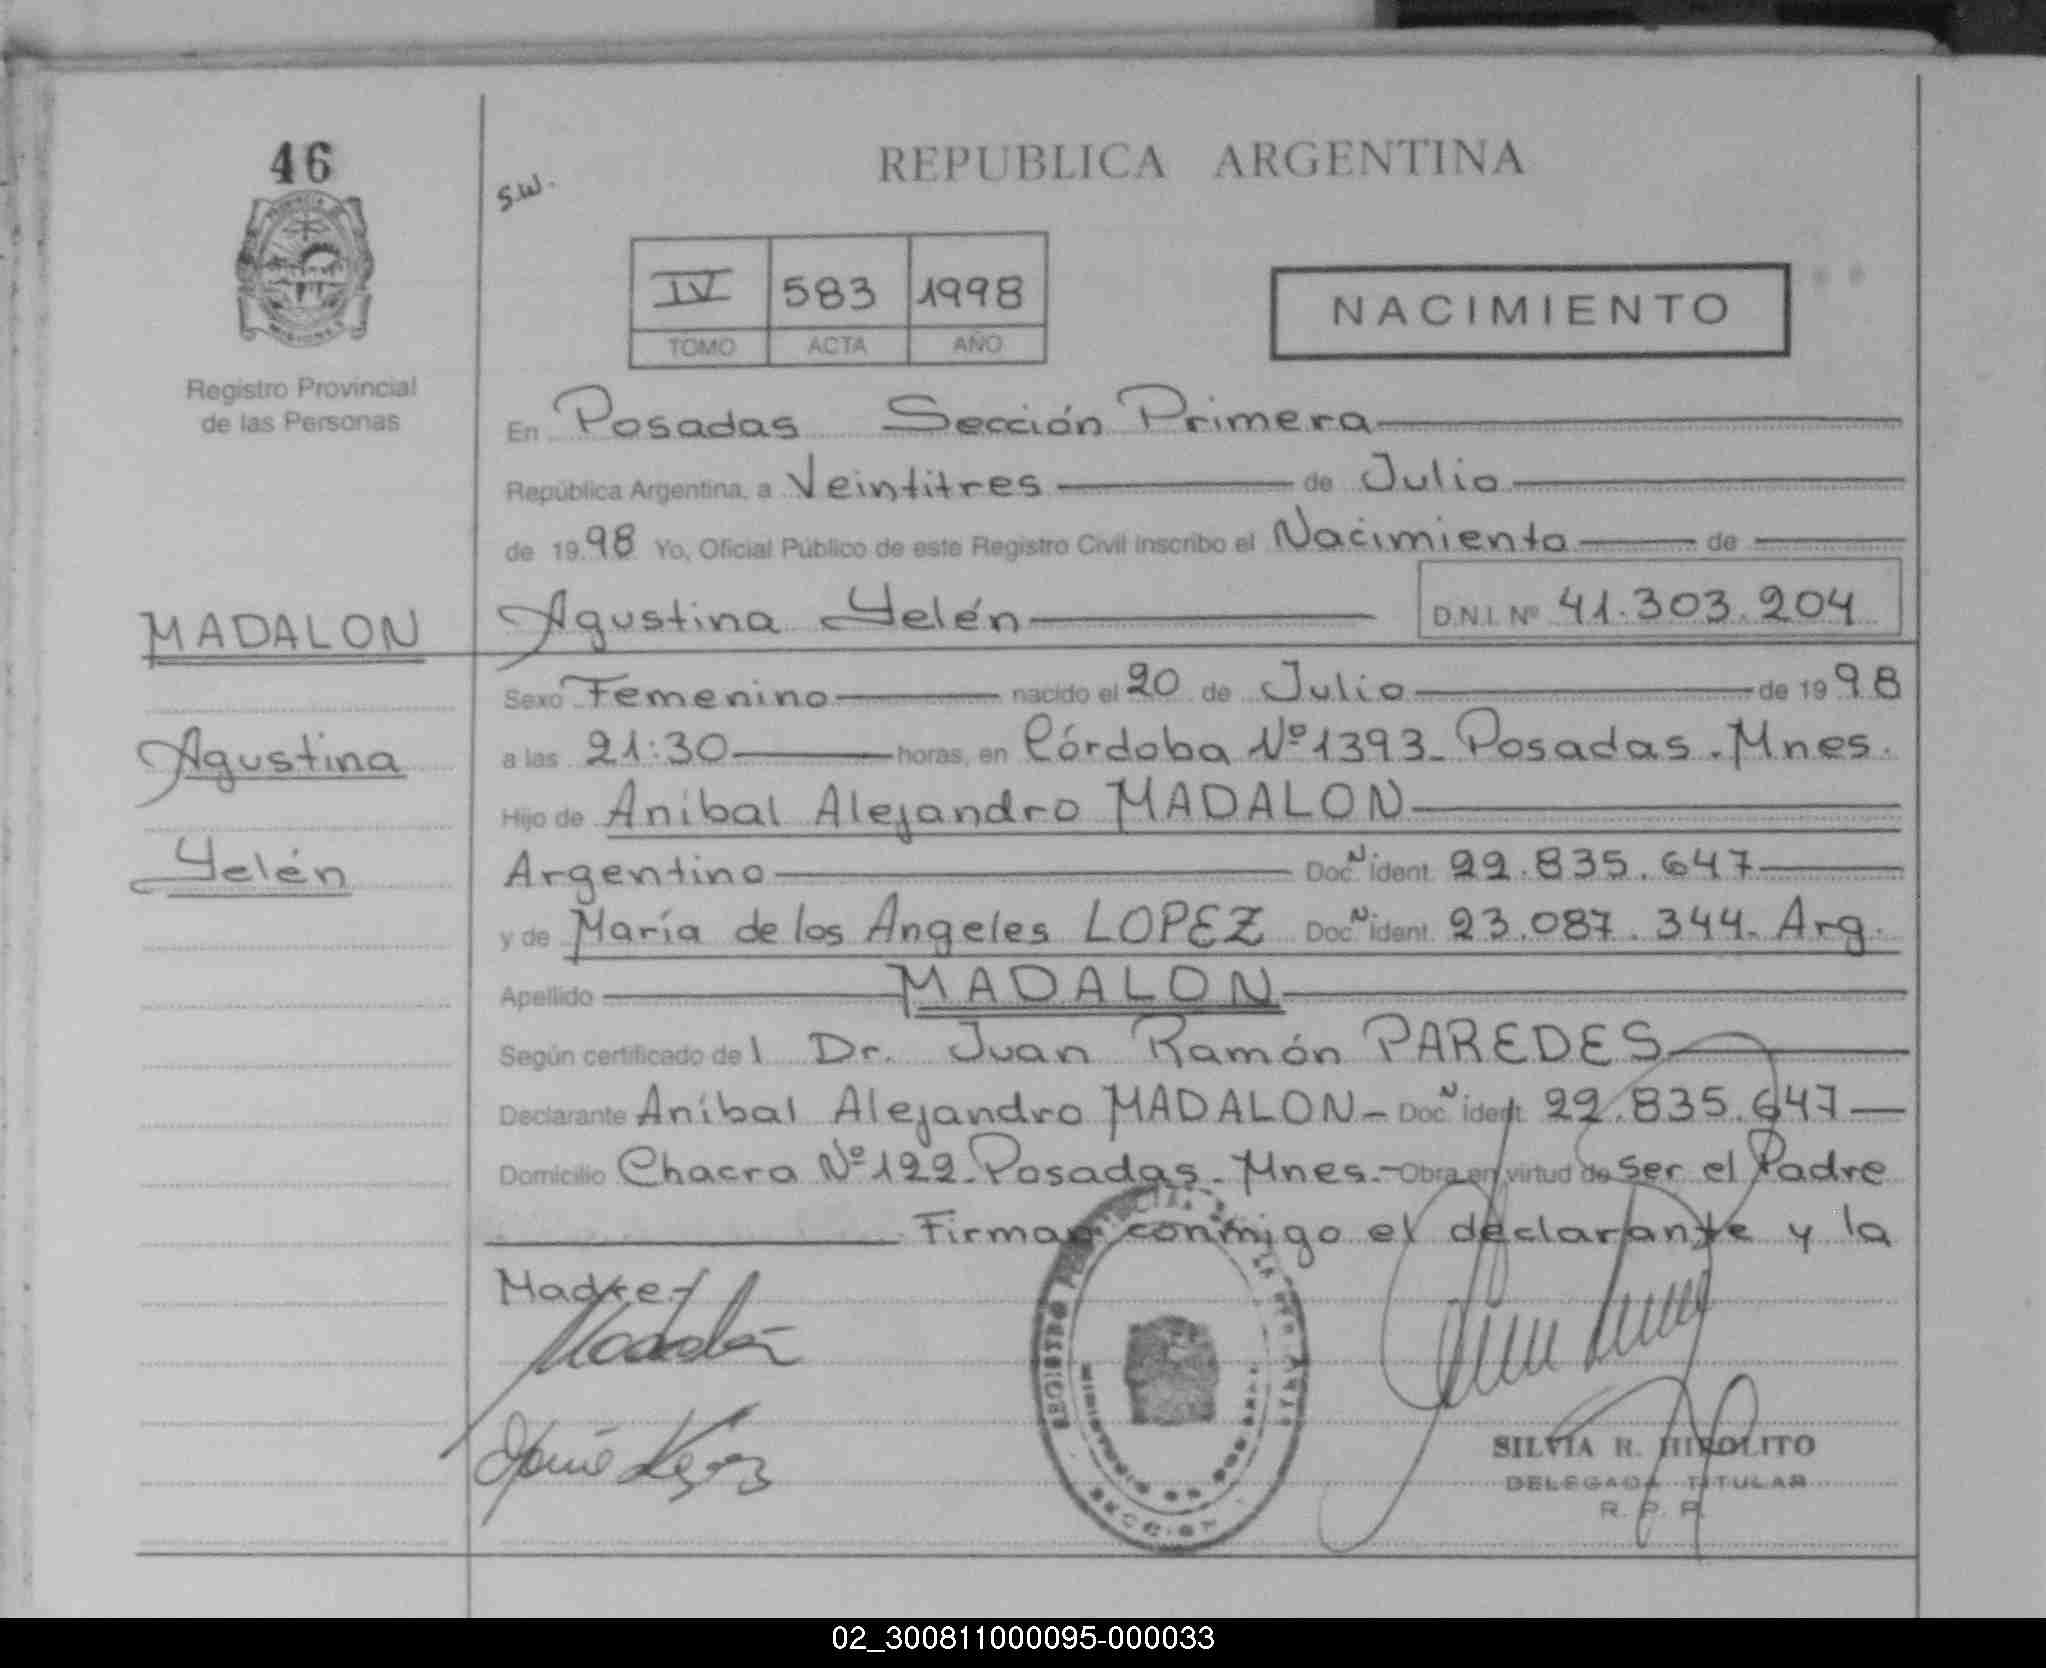 46
REPUBLICA ARGENTINA
S.W.
IV 583 1998
TOMO ACTA AÑO
NACIMIENTO
Registro Provincial
de las Personas
En Posadas Sección Primera
República Argentina, a Veintitres de Julio
de 1998 Yo, Oficial Público de este Registro Civil inscribo el Nacimiento de
MADALON Agustina Yelén D.N.I. Nº 41.303.204
Sexo Femenino nacido el 20 de Julio de 1998
Agustina a las 21:30 horas, en Córdoba Nº 1393- Posadas. Mnes.
Hijo de Aníbal Alejandro MADALON
Yelén Argentino Doc. Nº ident. 22.835.647
y de María de los Angeles LOPEZ Doc. Nº ident. 23.087.344. Arg.
Apellido MADALON
Según certificado del Dr. Juan Ramón PAREDES
Declarante Aníbal Alejandro MADALON- Doc. Nº ident. 22.835.647
Domicilio Chacra Nº 122- Posadas- Mnes.- Obra en virtud de ser el Padre
Firman conmigo el declarante y la
Madre-
SILVIA R. HIPOLITO
DELEGADA TITULAR
R. P. P.
02_300811000095-000033